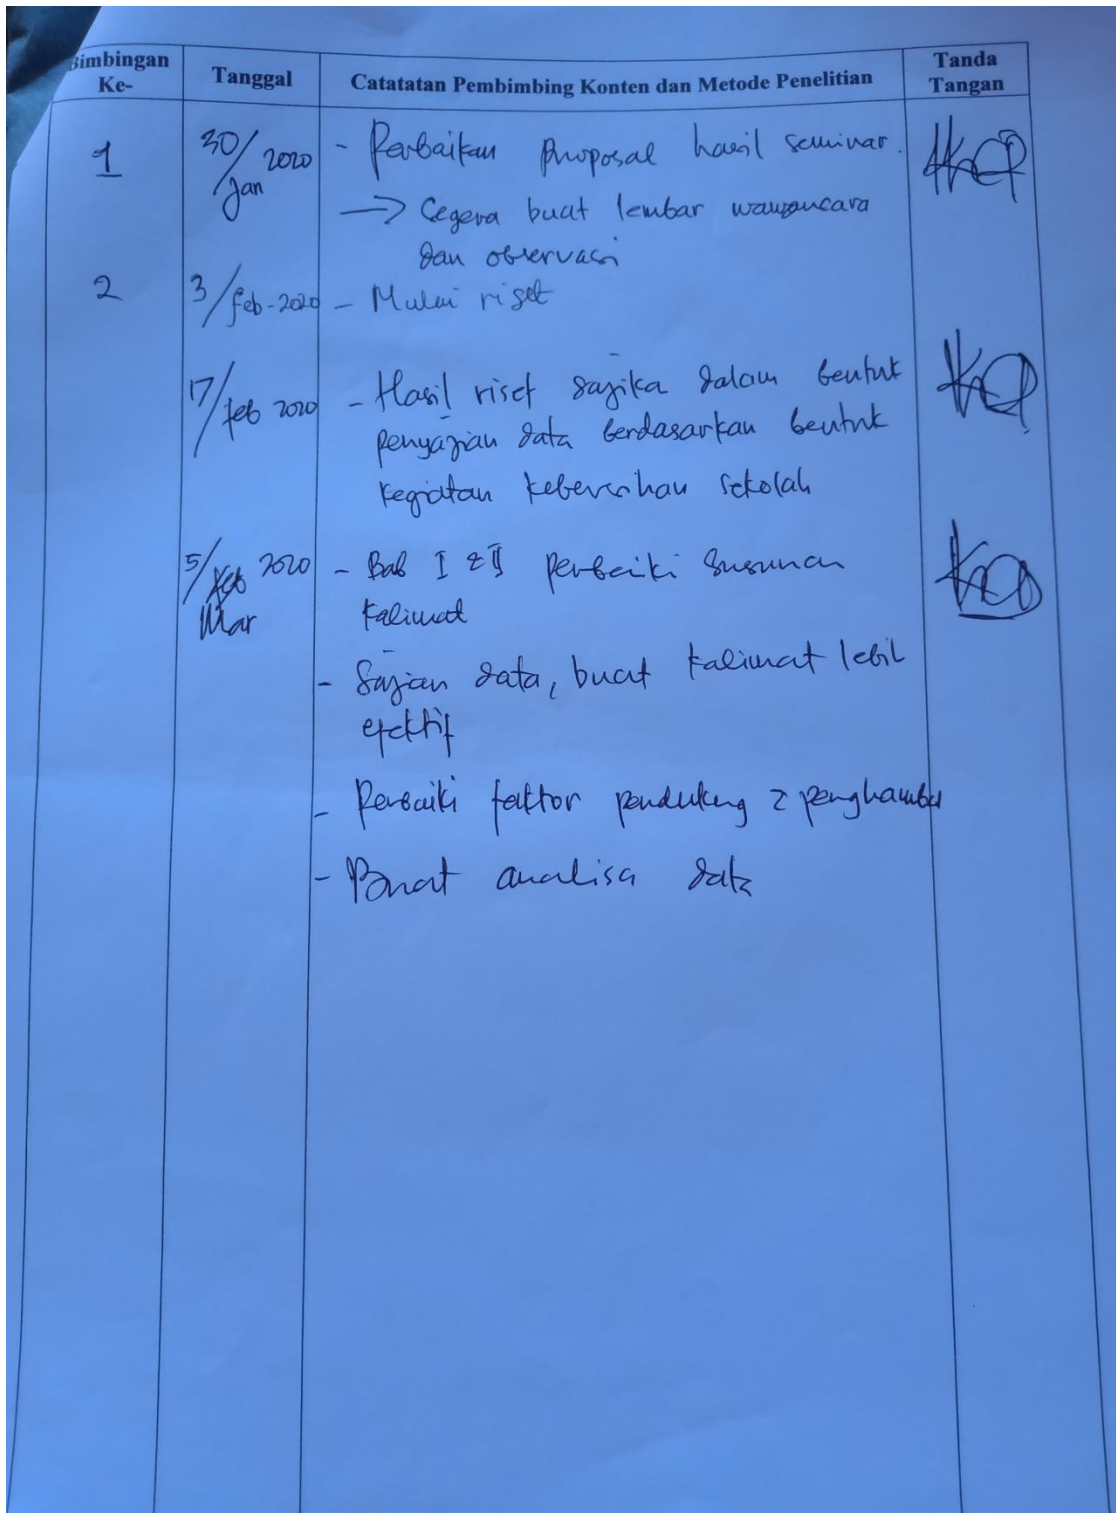 Bimbingan Ke- Tanggal Catatatan Pembimbing Konten dan Metode Penelitian Tanda Tangan
1 30/Jan 2020 - Perbaikan proposal hasil seminar.
→ Cegera buat lembar wawancara
dan observasi
2 3/feb-2020 - Mulai riset
17/feb 2020 - Hasil riset sajika dalam bentuk
penyajian data berdasarkan bentuk
kegiatan kebersihan sekolah
5/Mar 2020 - Bab I & II perbaiki susunan
kalimat
- Sajian data, buat kalimat lebih
efektif
- Perbaiki faktor pendukung & penghambat
- Buat analisa data